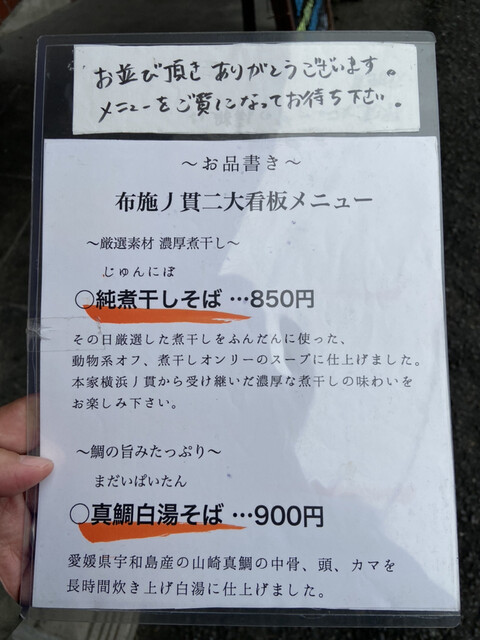 お並び頂きありがとうございます。
メニューをご覧になってお待ち下さい。
～お品書き～
布施丿貫二大看板メニュー
～厳選素材 濃厚煮干し～
じゅんにぼ
○純煮干しそば…850円
その日厳選した煮干しをふんだんに使った、
動物系オフ、煮干しオンリーのスープに仕上げました。
本家横浜丿貫から受け継いだ濃厚な煮干しの味わいを
お楽しみ下さい。
～鯛の旨みたっぷり～
まだいぱいたん
○真鯛白湯そば…900円
愛媛県宇和島産の山崎真鯛の中骨、頭、カマを
長時間炊き上げ白湯に仕上げました。